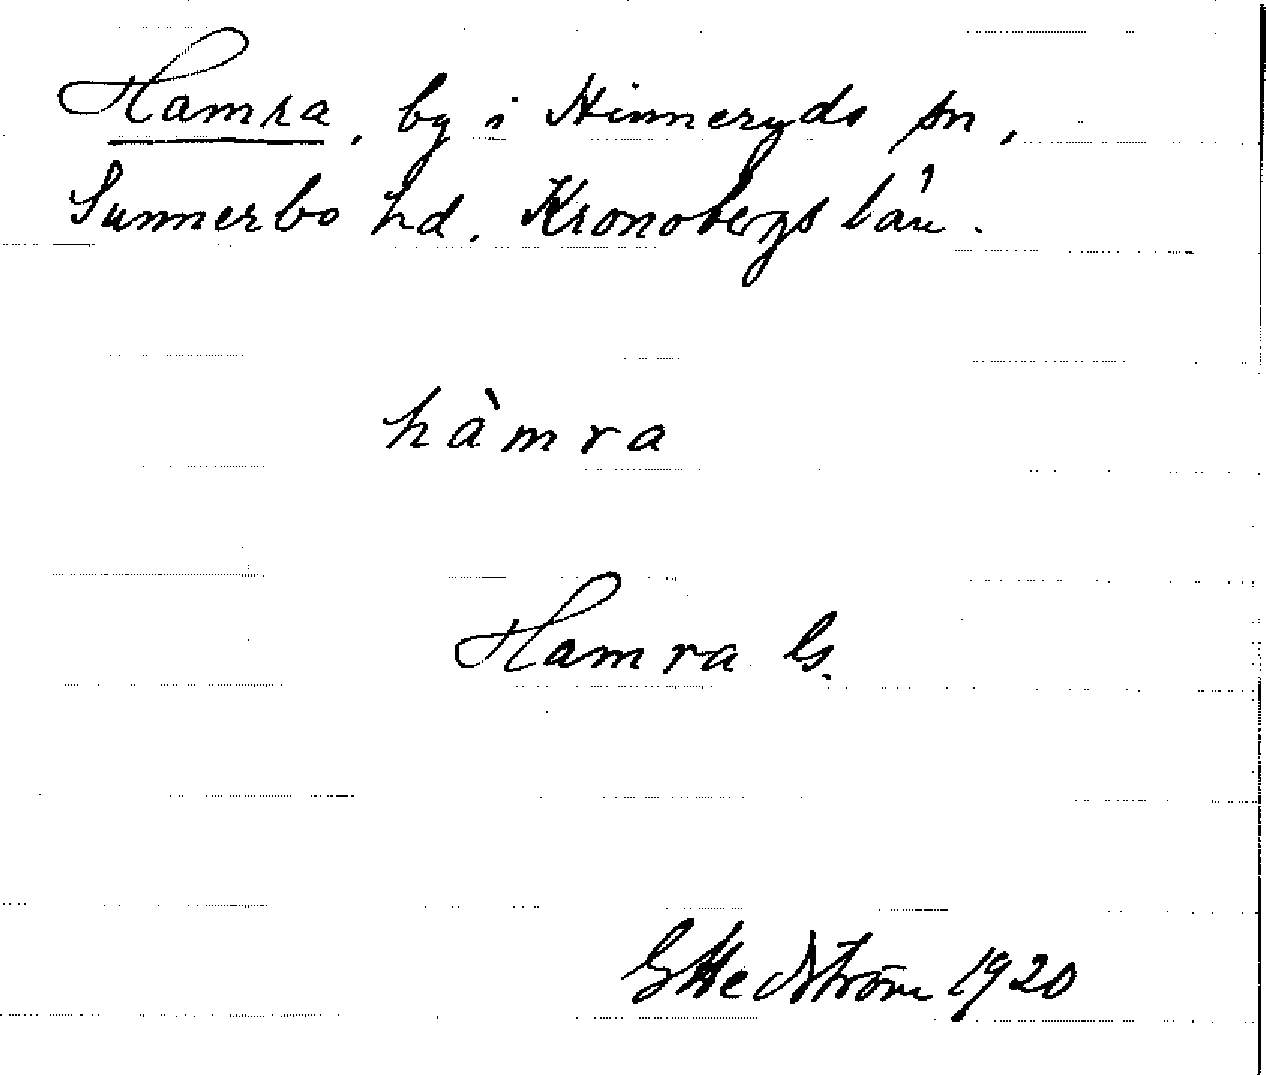 Hamra, by i Hinneryds sn,
Sunnerbo hd. Kronobergs län.
hàmra
Hamra G.
G Hedström 1920